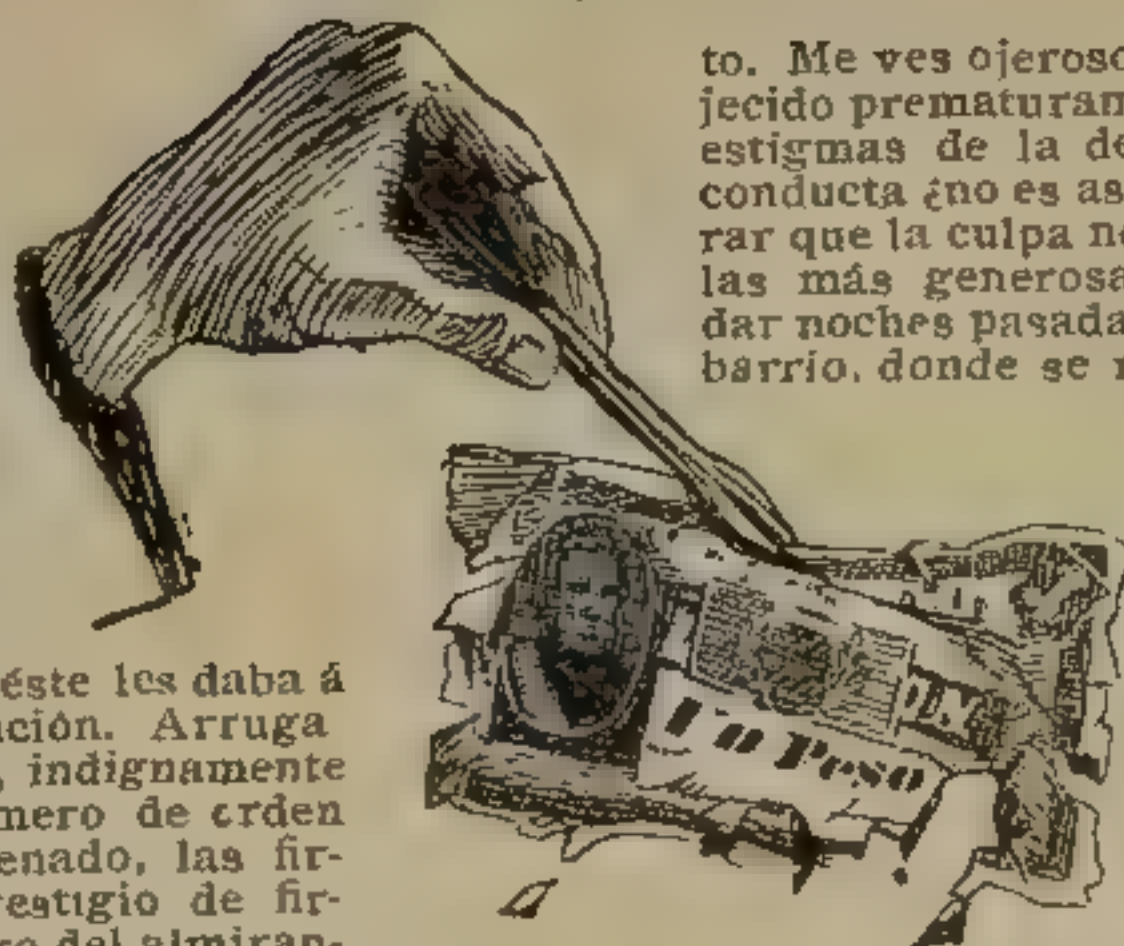 to. Me ves ojeroso
jecido prematuram
estigmas de la de
conducta ¿no es as
rar que la culpa n
las más generosa
dar noches pasada
barrio, donde se
Un Peso
éste les daba á
ción. Arruga
, indignamente
mero de crden
enado, las fir-
estigio de fir-
del almiran-